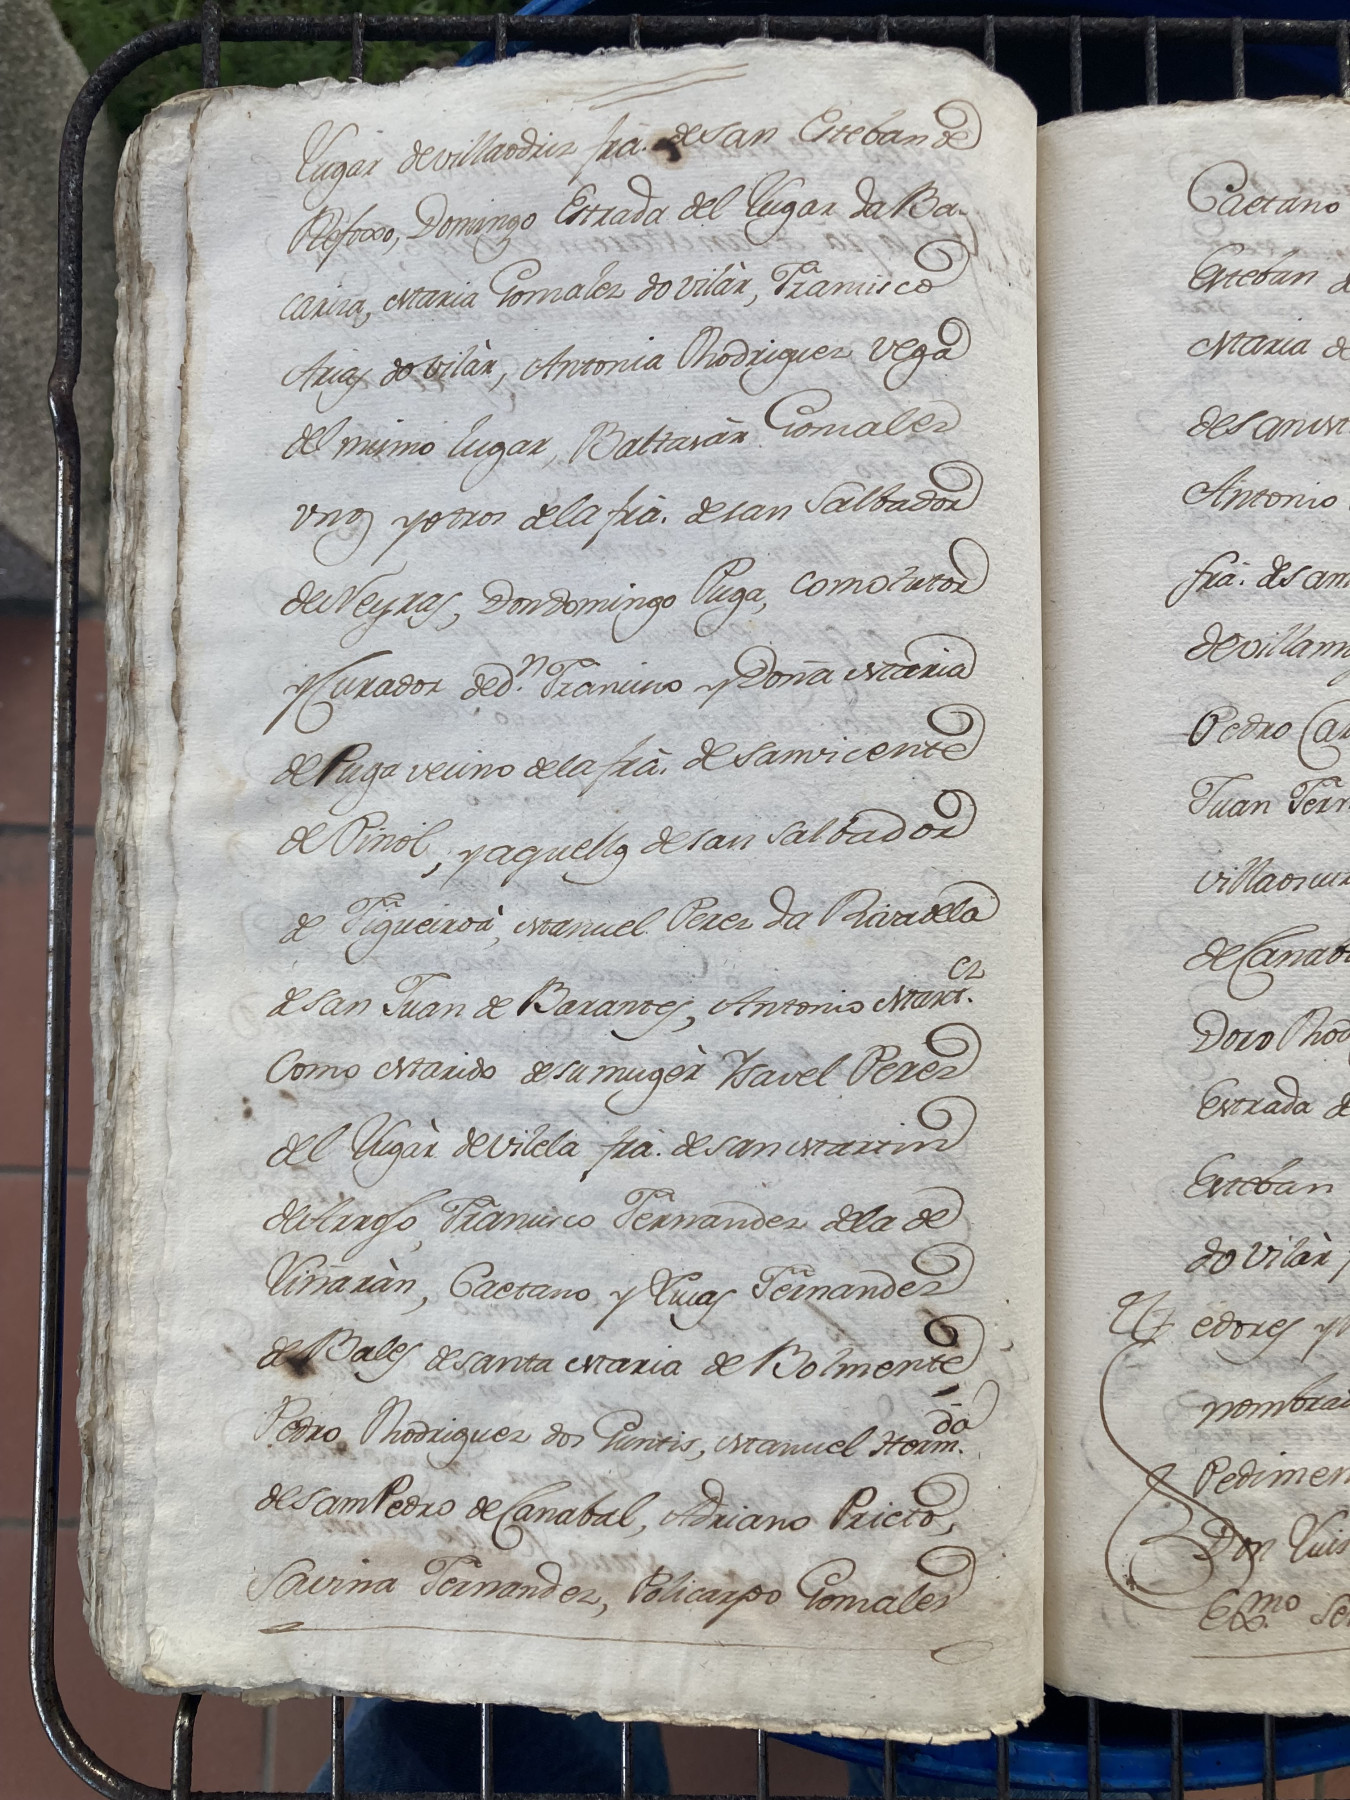 lugar de villaodriz frâ. de san Esteban de
Refoxo, Domingo Estrada del lugar da Ba-
cariza, Maria Gomalez do vilàr, Francisco
Arias do vilàr, Antonia Rhodriguez Vega
del mismo lugar, Baltasàr Gonzalez
unos y otros de la frâ. de san Salbador
de Neyras, Don Domingo Puga, como tutor
y Curador de d.n Francisco y Doña Maria
de Puga vecino de la frâ. de san vicente
de Pinol, y aquellos de san Salbador
de Figueiroà, Manuel Perez da Rivadela
de san Juan de Barantes, Antonio Mart.ez
Como Marido de su mugèr Ysavel Perez
del lugàr de vilela frâ. de san Martin
de Arroxo, Francisco Fernandez de la de
Viñaràn, Caetano y Lucas Fernandez
de Bales de santa Maria de Bolmente
Pedro Rhodriguez dos Guntis, Manuel Herm.da
de sam Pedro de Canabal, Adriano Prieto,
Savina Fernandez, Policarpo Gomalez
Caetano
Esteban d
Maria de
de san M
Antonio
frâ. de sam
de villam
Pedro Ca
Juan Fern
villaosur
de Canab
Doro Rhod
Estrada de
Esteban
do Vilàr,
edores y
nombra
Pedimen
Don Luis
Ex.mo Se